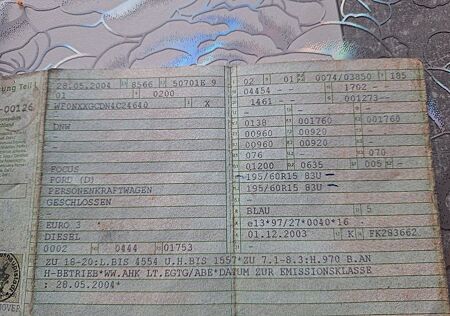 ung Teil I
-00126
28.05.2004 8566 50701E 9
01 0200
WF0NXXGCDN4C24640 X
DNW
FOCUS
FORD (D)
PERSONENKRAFTWAGEN
GESCHLOSSEN
EURO 3
DIESEL
0002 0444 01753
02 01 0074/03850 185
04454 - 1702 -
- 1461 - 001273-
-
0138 001760 001760
00960 00920 -
00960 00920 -
076 - 070
01200 0635 005 -
195/60R15 83U
195/60R15 83U
-
BLAU 5
e13*97/27*0040*16 -
01.12.2003 K FK283662
ZU 18-20:L.BIS 4554 U.H.BIS 1557*ZU 7.1-8.3:H.970 B.AN
H-BETRIEB*WW.AHK LT.EGTG/ABE*DATUM ZUR EMISSIONSKLASSE
: 28.05.2004*